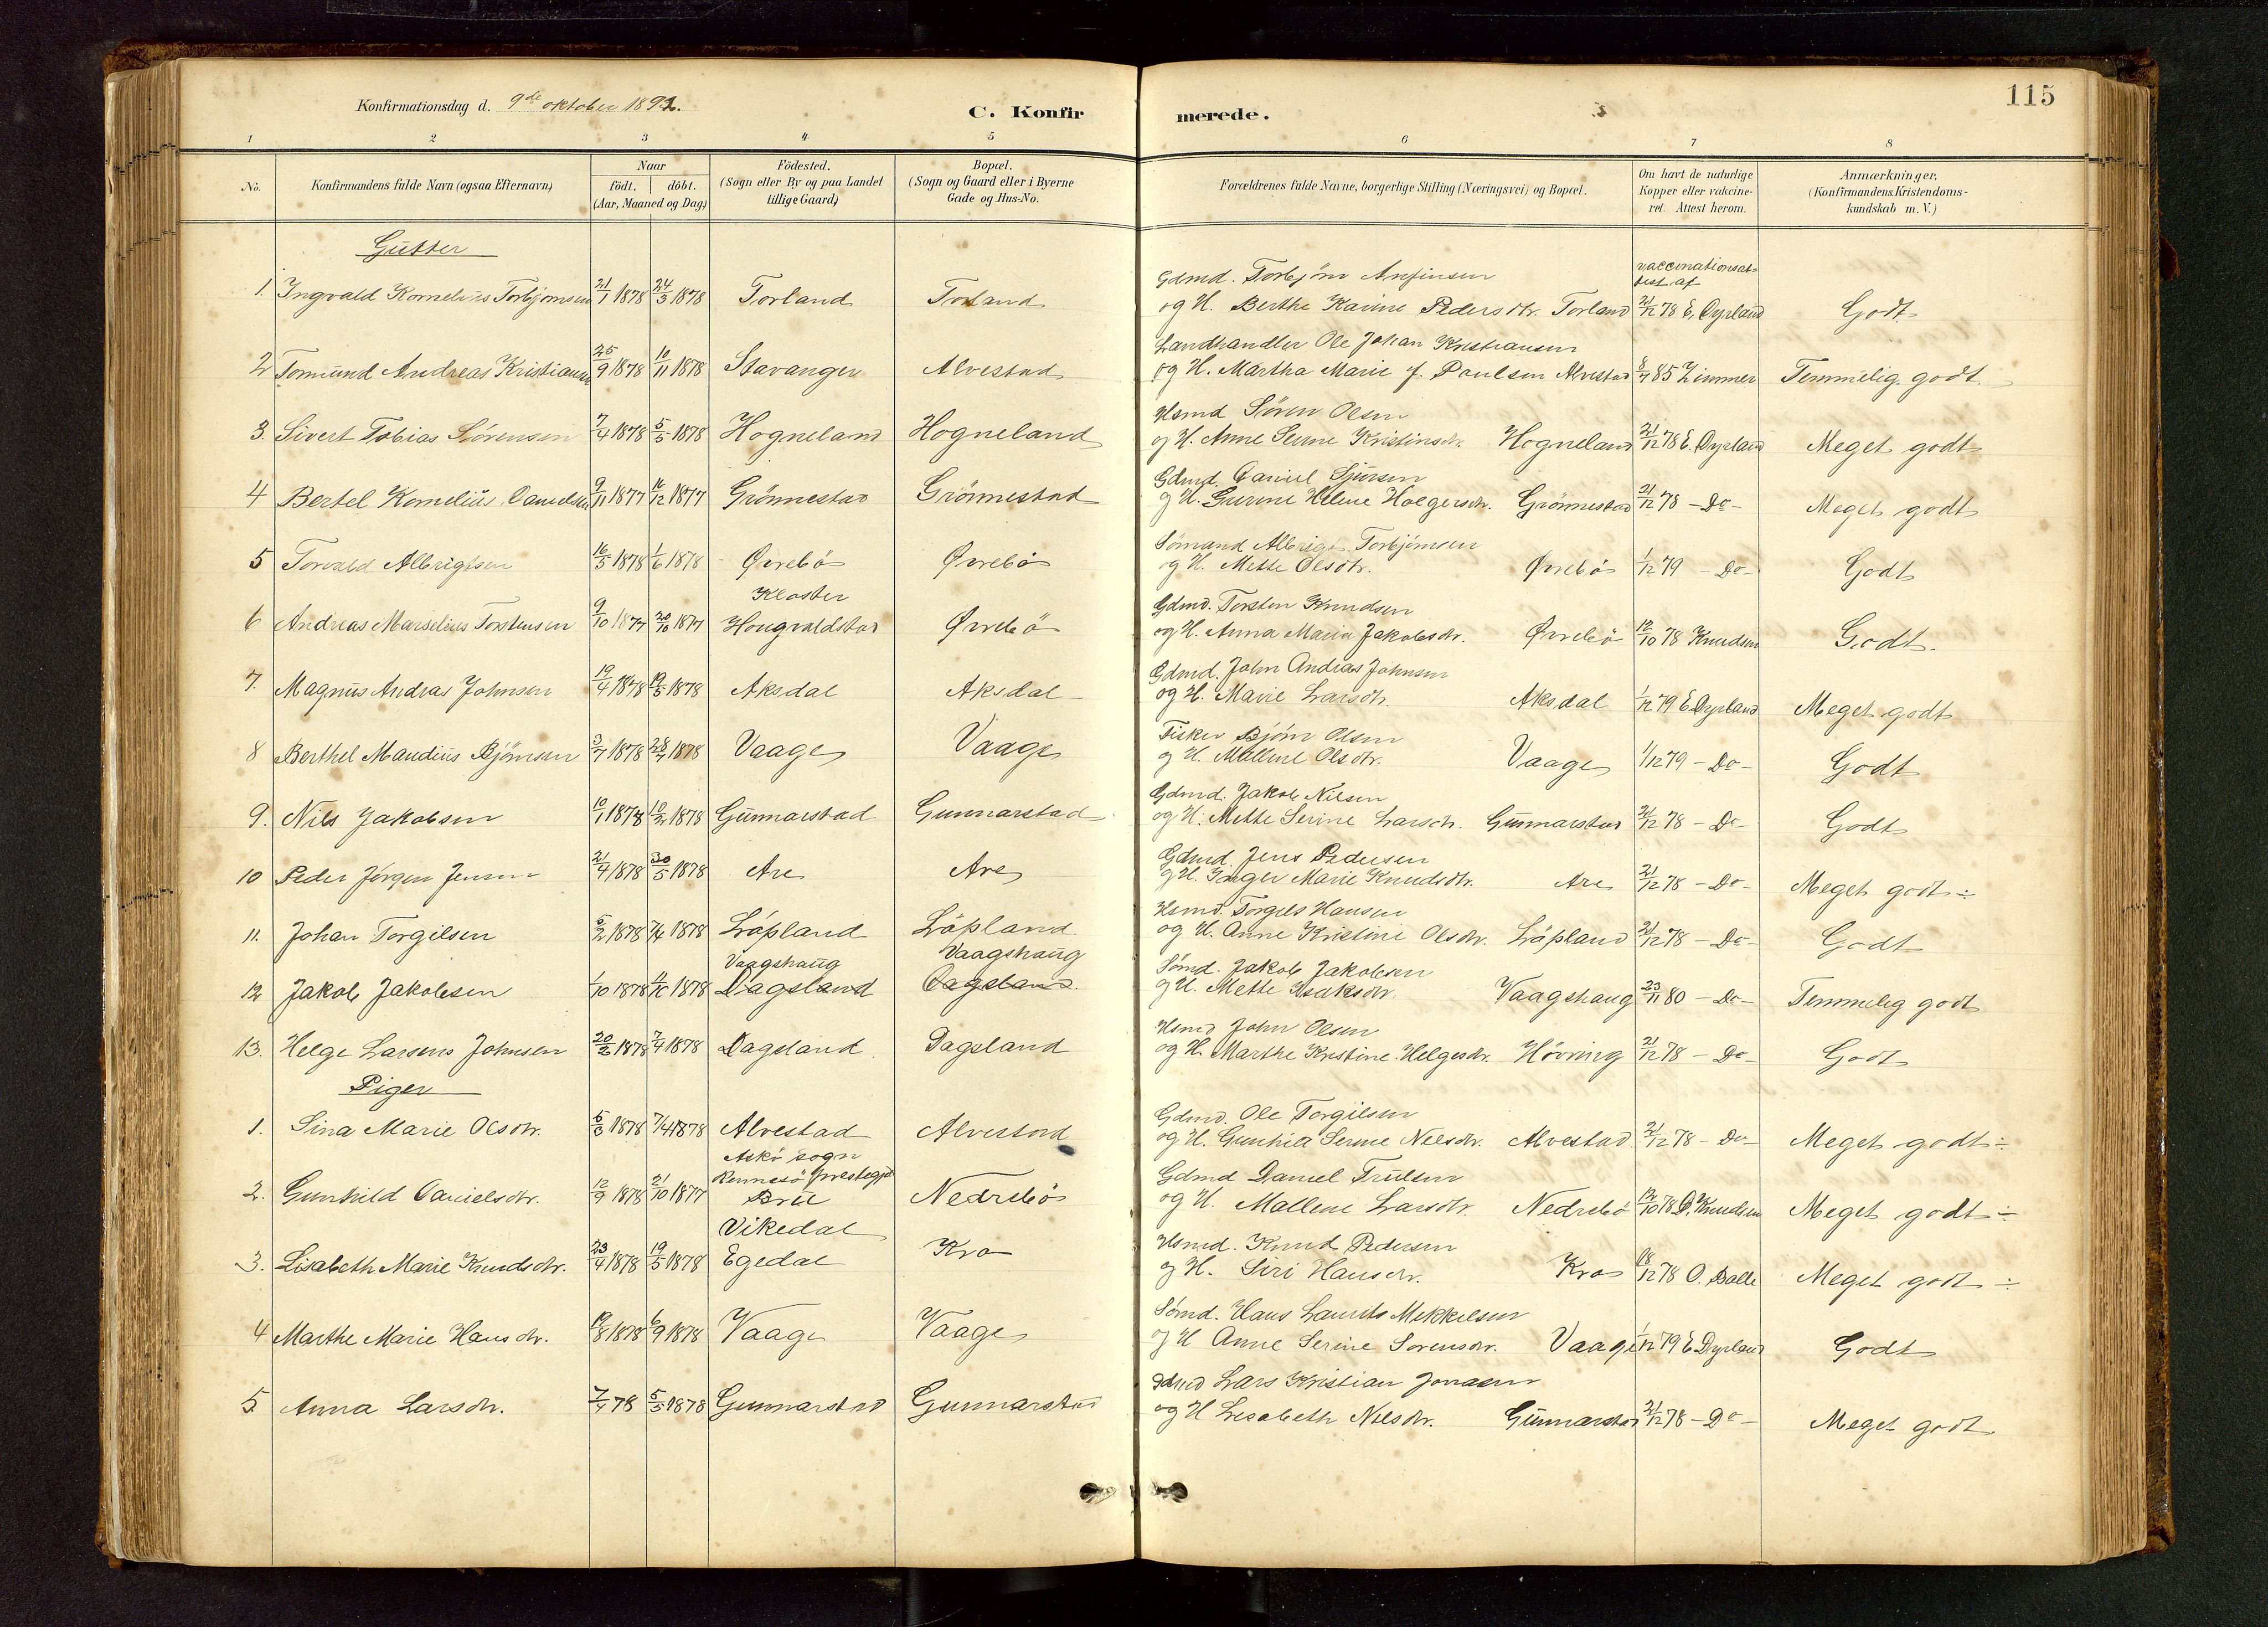 Konfirmationsdag d. 9de oktober 1892.
C. Konfirmerede.
115
1 2 3 4 5 6 7 8
No.
Konfirmandens fulde Navn (ogsaa Efternavn)
Naar
födt. döbt.
(Aar, Maaned og Dag)
Födested.
(Sogn eller By og paa Landet
tillige Gaard)
Bopæl.
(Sogn og Gaard eller i Byerne
Gade og Hus-No.
Forældrenes fulde Navne, borgerlige Stilling (Næringsvei) og Bopæl.
Om havt de naturlige
Kopper eller vakcine-
ret. Attest herom.
Anmærkninger,
(Konfirmandens Kristendoms-
kundskab m. V.)
Gutter
vaccinationsat=
test af
Gdmd. Torbjörn Anfinsen
1. Ingvald Kornelius Torbjornsen 21/1 1878 24/3 1878 Torland Torland og H. Berthe Karine Pedersdtr. Torland 21/12 78 E. Dyrland Godt
Landhandler Ole Johan Kristiansen
2 Tomund Andreas Kristiansen 25/9 1878 10/11 1878 Stavanger Alvestad og H. Martha Marie f. Poulsen Alvestad 8/7 85 Zimmer Temmelig godt.
Hsmd Sören Olsen
3. Sivert Tobias Sörensen 7/4 1878 5/5 1878 Hogneland Hogneland og H. Anne Serine Kristinsdtr. Hogneland 21/12 78 E. Dyrland Meget godt
Gdmd. Daniel Sjursen
4 Bertel Kornelius Danielsen 9/11 1877 16/12 1877 Grönnestad Grönnestad og H. Gurine Helene Holgersdtr. Grönnestad 21/12 78 - Do - Meget godt
Sömand Albrigt Torbjörnsen
5 Torvald Albrigtsen 16/5 1878 1/6 1878 Øvrebö Øvrebö og H. Mette Olsdtr. Øvrebö 1/12 79 - Do - Godt
Kloster
Gdmd. Torsten Knudsen
6 Andreas Marselius Torstensen 9/10 1877 20/10 1877 Hougvaldstad Øvrebö og H. Anna Maria Jakobsdtr. Øvrebö 12/10 78 Knudsen Godt.
Gdmd. John Andreas Johnsen
7. Magnus Andras Johnsen 19/4 1878 19/5 1878 Aksdal Aksdal og H. Marie Larsdtr. Aksdal 1/12 79 E. Dyrland Meget godt
Fisker Björn Olsen
8 Berthel Maudius Björnsen 3/7 1878 28/7 1878 Vaage Vaage og H. Mallene Olsdtr. Vaage 1/12 79 - Do - Godt
Gdmd. Jakob Nilsen
9. Nils Jakobsen 10/1 1878 10/2 1878 Gunnarstad Gunnarstad og H. Mette Serine Larsdtr. Gunnarstad 21/12 78 - Do - Godt
Gdmd. Jens Pedersen
10 Peder Jörgen Jensen 21/4 1878 30/5 1878 Are Are og H. Inger Marie Knudsdtr. Are 21/12 78 - Do - Meget godt ÷
Hsmd. Torgils Hansen
11. Johan Torgilsen 5/2 1878 7/4 1878 Löpland Löpland og H. Anne Kristine Olsdtr. Löpland 21/12 78 - Do - Godt
Vaagshaug Vaagshaug
Sömd. Jakob Jakobsen
12 Jakob Jakobsen 1/10 1878 11/10 1878 Dagsland Dagsland. og H. Mette Isaksdtr. Vaagshaug 23/11 80 - Do - Temmelig godt
Hsmd John Olsen
13. Helge Larsens Johnsen 20/2 1878 7/4 1878 Dagsland Dagsland og H. Marthe Kristine Helgesdtr. Hövring 21/12 78 - Do - Godt
Piger
Gdmd. Ole Torgilsen
1. Sina Marie Olsdtr. 5/3 1878 7/4 1878 Alvestad Alvestad og H. Gunhild Serine Nilsdtr. Alvestad 21/12 78 - Do - Meget godt ÷
Askö sogn
Rennesö prestegjd
Gdmd Daniel Trulsen
2. Gunhild Danielsdtr. 12/9 1878 21/10 1877 Bru Nedrebö og H. Mallene Larsdtr. Nedrebö 12/10 78 D. Knudsen Meget godt ÷
Vikedal
Hsmd. Knud Pedersen
3. Lisabeth Marie Knudsdtr. 23/4 1878 19/5 1878 Egedal Kro og H. Siri Hansdtr. Kro 18/12 78 O. Dalle Meget godt ÷
Sömd. Hans Laurits Mikkelsen
4 Marthe Marie Hansdtr. 19/8 1878 6/9 1878 Vaage Vaage og H Anne Serine Sorensdtr. Vaage 1/12 79 E Dyrland Godt
Gdmd Lars Kristian Jonasen
5 Anna Larsdtr. 7/4 78 5/5 1878 Gunnarstad Gunnarstad og H Lisabeth Nilsdtr. Gunnarstad 21/12 78 - Do - Meget godt